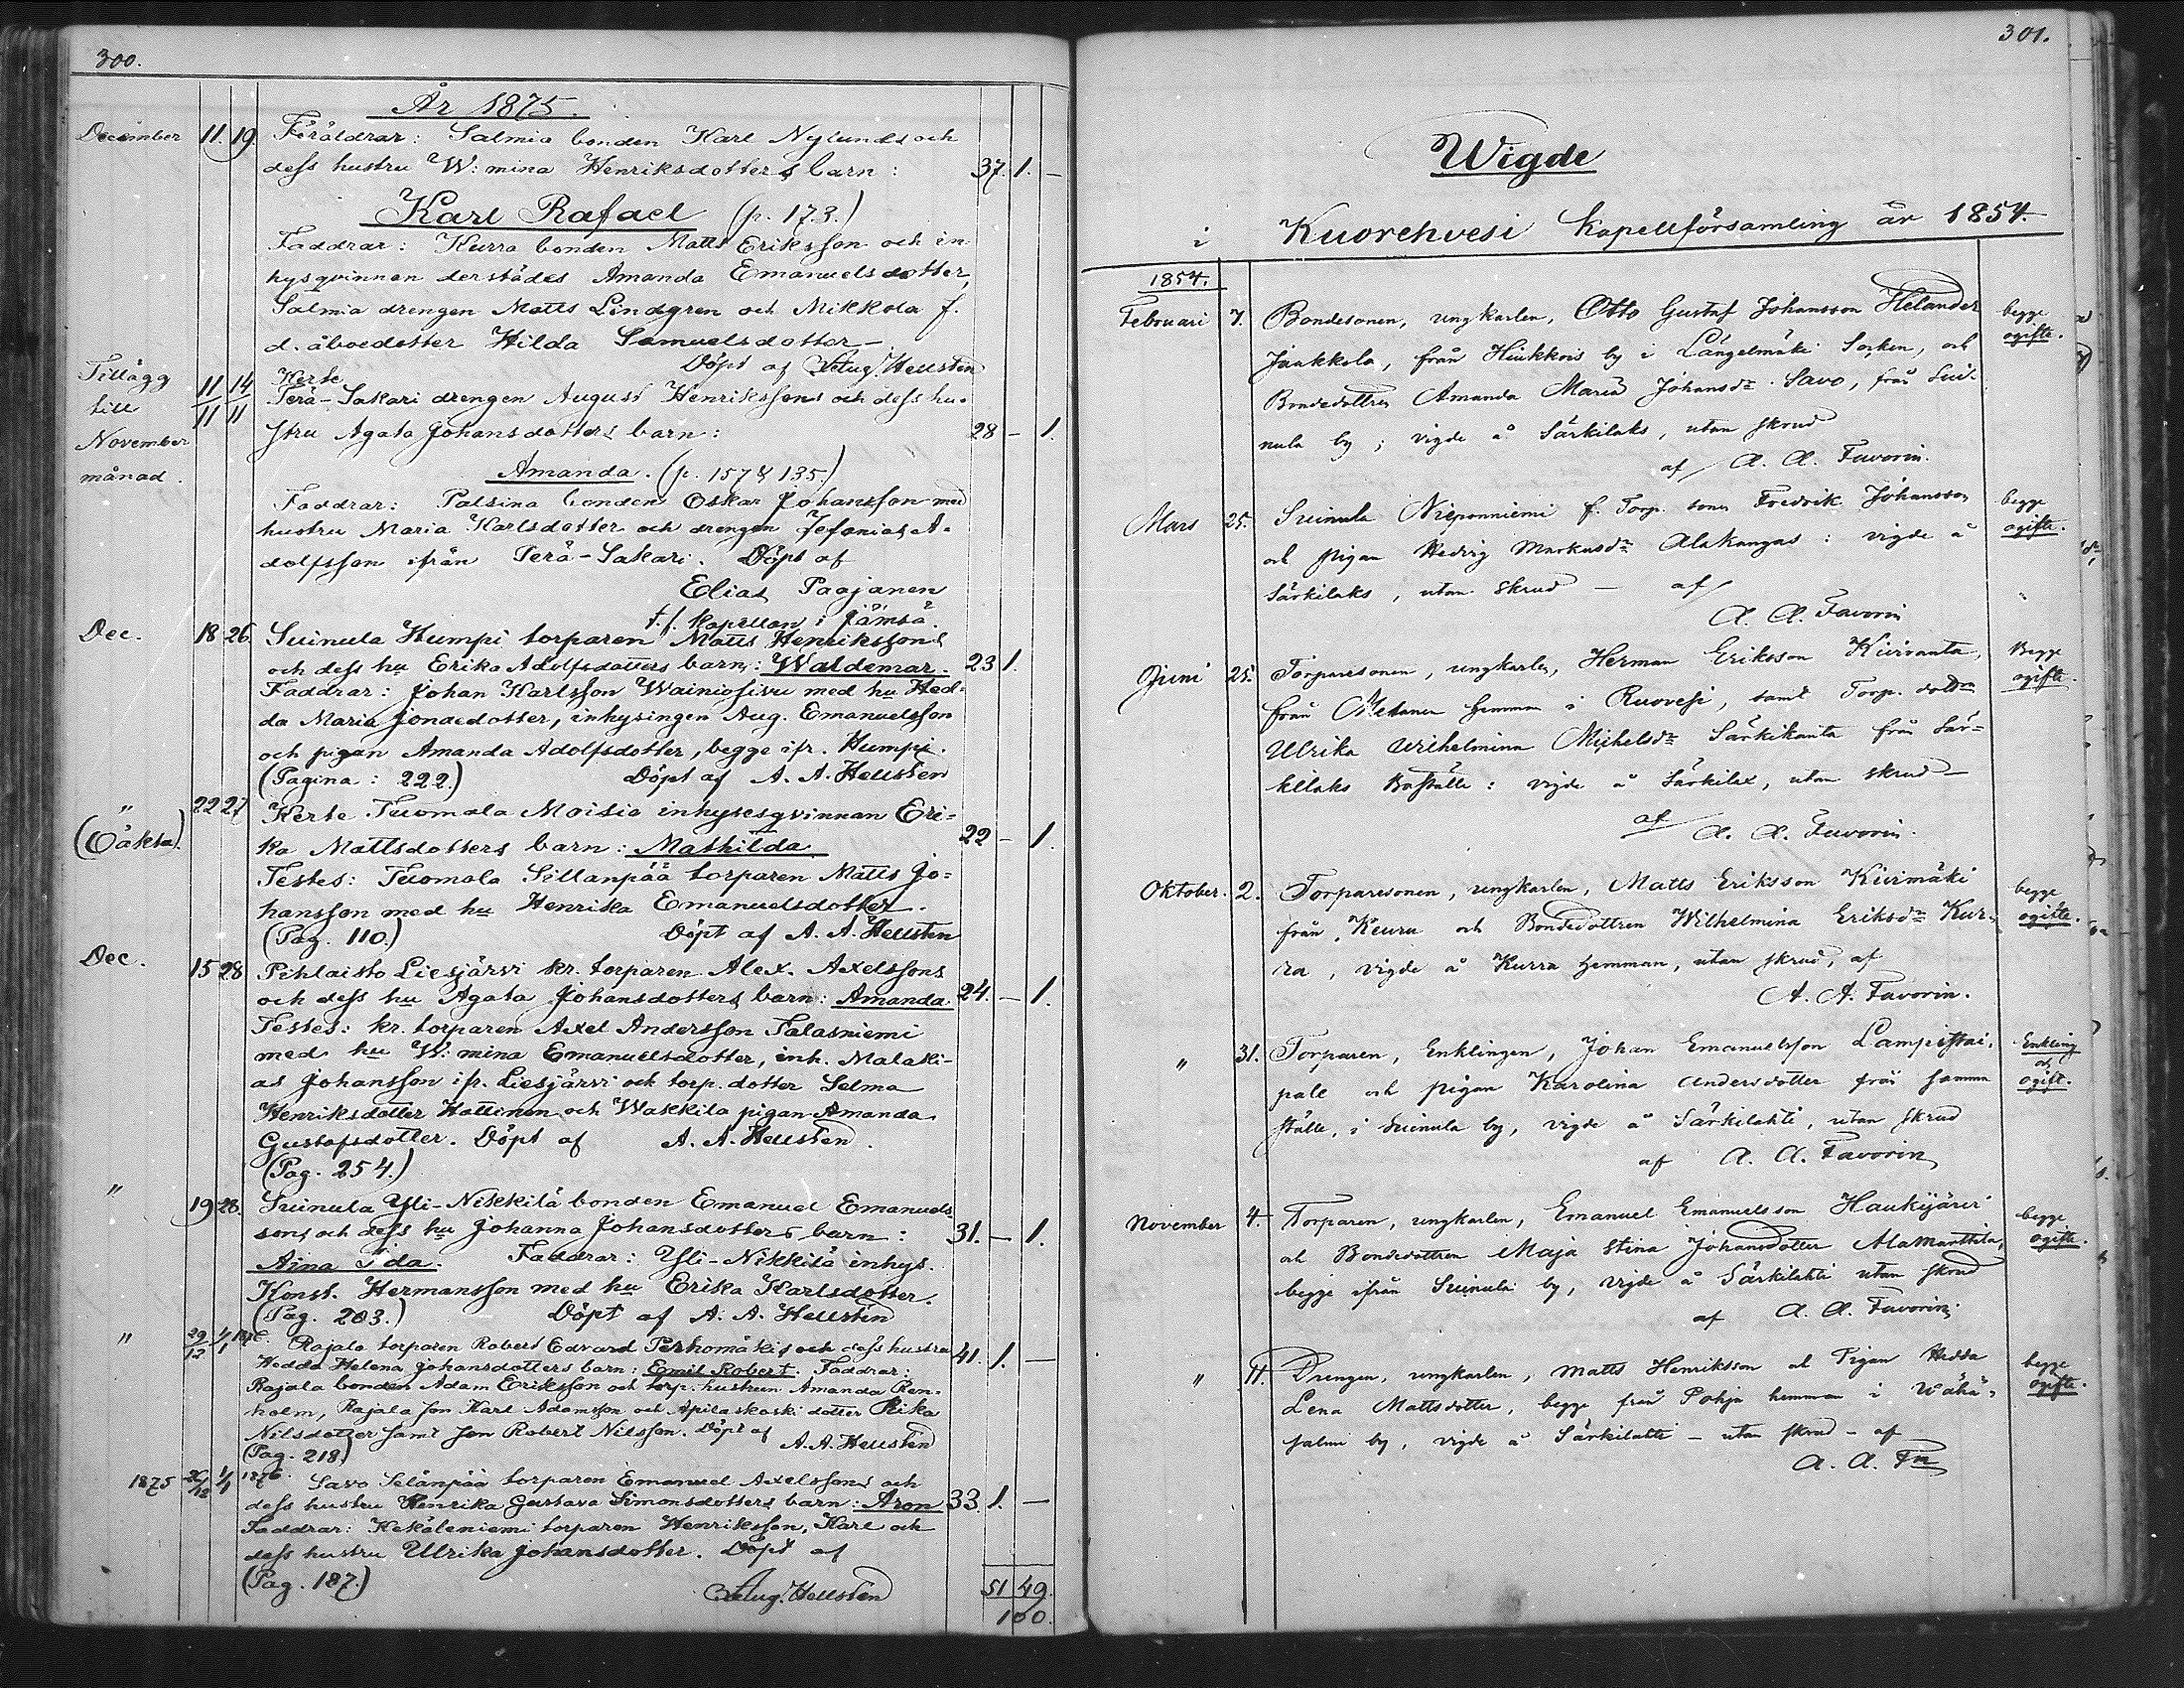 300.
År 1875.
December 11. 19. Föräldrar: Salmia bonden Karl Nylunds och
dess hustru W:mina Henriksdotters barn: 37. 1. —
Karl Rafael (p. 173.)
Faddrar: Kurra bonden Matts Eriksson och in
hysqvinnan derstädes Amanda Emanuelsdotter,
Salmia drengen Matts Lindgren och Mikkola f.
d. åboedotter Hilda Samuelsdotter —
Döpt af Aug. Hellsten
Tillägg till November månad.
11/11 14/11 Kerte
Perä-Sakari drengen August Henrikssons och dess hu-
stru Agata Johansdotters barn: 28 — 1.
Amanda. (p. 157 & 135.)
Faddrar: Palsina bonden Oskar Johansson med
hustru Maria Karlsdotter och drengen Zefanias A-
dolfsson ifrån Perä-Sakari. Döpt af
Elias Paajanen
t.f. Kapellan i Jämsä.
Dec. 18 26. Suinula Humpi torparen Matts Henrikssons
och dess hu Erika Adolfsdotters barn: Waldemar. 23 1.
Faddrar: Johan Karlsson Wainiosivu med hu Hed-
da Maria Jonaedotter, inhysingen Aug. Emanuelsson
och pigan Amanda Adolfsdotter, begge ifr. Humpi.
(Pagina: 222.) Döpt af A. A. Hellsten
" 22 27 Kerte Tuomala Moisio inhysesqvinnan Eri-
(Oäkta). ka Mattsdotters barn: Mathilda 22 — 1.
Testes: Tuomala Sillanpää torparen Matts Jo-
hansson med hu Henrika Emanuelsdotter.
(Pag. 110.) Döpt af A. A. Hellsten
Dec. 15 28 Pihlaisto Liesjärvi kr. torparen Alex. Axelssons
och dess hu Agata Johansdotters barn: Amanda. 24. — 1.
Testes: kr. torparen Axel Andersson Talasniemi
med hu W:mina Emanuelsdotter, inh. Malaki-
as Johansson ifr. Liesjärvi och torp. dotter Selma
Henriksdotter Hattinen och Wakkila pigan Amanda
Gustafsdotter. Döpt af A. A. Hellsten.
(Pag. 254.)
" 19 28. Suinula Yli-Nikkilä bonden Emanuel Emanuels-
sons och dess hu Johanna Johansdotters barn: 31. — 1.
Aina Ida. Faddrar: Yli-Nikkilä inhys.
Konst. Hermansson med hu Erika Karlsdotter.
(Pag. 203.) Döpt af A. A. Hellsten
" 29/12 1/1 1876. Rajala torparen Robert Edvard Perhomäkis och dess hustru 41. 1. —
Hedda Helena Johansdotters barn: Emil Robert. Faddrar:
Rajala bonden Adam Eriksson och torp. hustrun Amanda Ren-
holm, Rajala son Karl Adamsson och Apilaskoski dotter Rika
Nilsdotter samt son Robert Nilsson. Döpt af
(Pag. 218) A. A. Hellsten
1875 26/12 1/1 1876. Savo Selänpää torparen Emanuel Axelssons och
dess hustru Henrika Gustava Simonsdotters barn: Aron 33. 1. —
Faddrar: Kekäleniemi torparen Henriksson, Karl och
dess hustru Ulrika Johansdotter. Döpt af
(Pag. 187.) Aug. Hellsten
51 49.
100.
301.
Wigde
i Kuorehvesi Kapellförsamling år 1854.
1854.
Februari 7. Bondesonen, ungkarlen, Otto Gustaf Johansson Helander begge
Jaakkola, från Hiukkois by i Längelmäki Socken, och ogifte.
Bondedottren Amanda Maria Johansdr Savo, från Sui-
nula by; vigde å Särkilaks, utan skrud
af A. A. Favorin.
Mars 25. Suinula Nieponniemi f. Torp. sonen Fredrik Johansson begge
och pigan Hedvig Markusdr Alakangas: vigde å ogifte.
Särkilaks, utan skrud — af
A. A. Favorin
Juni 25. Torparesonen, ungkarlen, Herman Eriksson Kiiroanta, Begge
från hemman i Ruovesi, samt Torp. dottr ogifte.
Ulrika Wilhelmina Michelsdr Särkikanta från Sär-
kilaks Boställe: vigde å Särkilax, utan skrud —
af A. A. Favorin.
Oktober. 2. Torparesonen, ungkarlen, Matts Eriksson Kiirimäki begge
från Keuru och Bondedottren Wilhelmina Eriksdr Kur- ogifte.
ra, vigde å Kurra hemman, utan skrud, af
A. A. Favorin.
" 31. Torparen, Enklingen, Johan Emanuelsson Lampistai- Enkling
pale och pigan Karolina Andersdotter från samma och ogift.
ställe, i Suinula by, vigde å Särkilahti, utan skrud
af A. A. Favorin
November 4. Torparen, ungkarlen, Emanuel Emanuelsson Haukijärvi begge
och Bondedottren Maja Stina Johansdotter Alamarttila, ogifte.
begge ifrån Suinula by, vigde å Särkilahti utan skrud
af A. A. Favorin.
" 11. Drengen, ungkarlen, Matts Henriksson och Pigan Hedda begge
Lena Mattsdotter, begge från Pohja hemman i Wähä- ogifte.
salmi by, vigde å Särkilahti — utan skrud — af
A. A. Fn